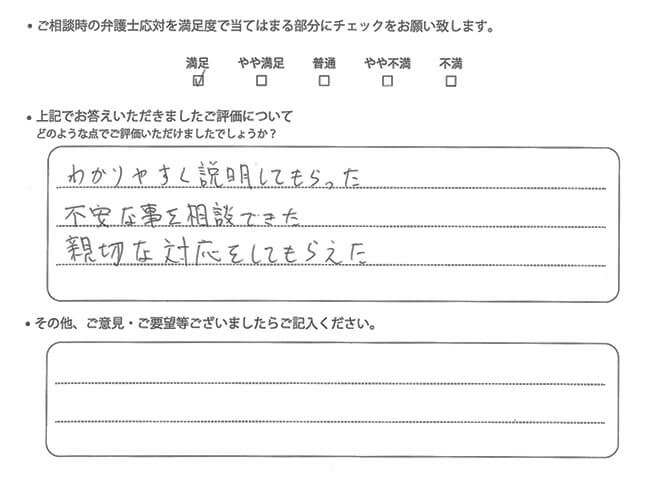 ・ご相談時の弁護士応対を満足度で当てはまる部分にチェックをお願い致します。
満足 やや満足 普通 やや不満 不満
☑ ☐ ☐ ☐ ☐
・上記でお答えいただきましたご評価について
どのような点でご評価いただけましたでしょうか？
わかりやすく説明してもらった
不安な事を相談できた
親切な対応をしてもらえた
・その他、ご意見・ご要望等ございましたらご記入ください。